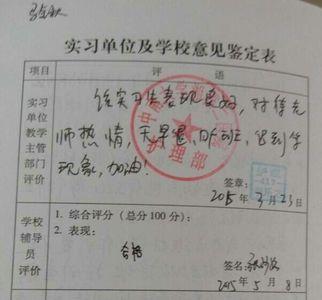 实习单位及学校意见鉴定表
项目 评 语
实习
单位
教学
主管
部门
评价
该实习生表现良好,对待老
师热情,无早退、
现象,加油!
护理部
签章:
2015年3月23日
学校
辅导
员
评价
1. 综合评分(总分100分):
2. 表现:
合格
签名:
2015年5月8日